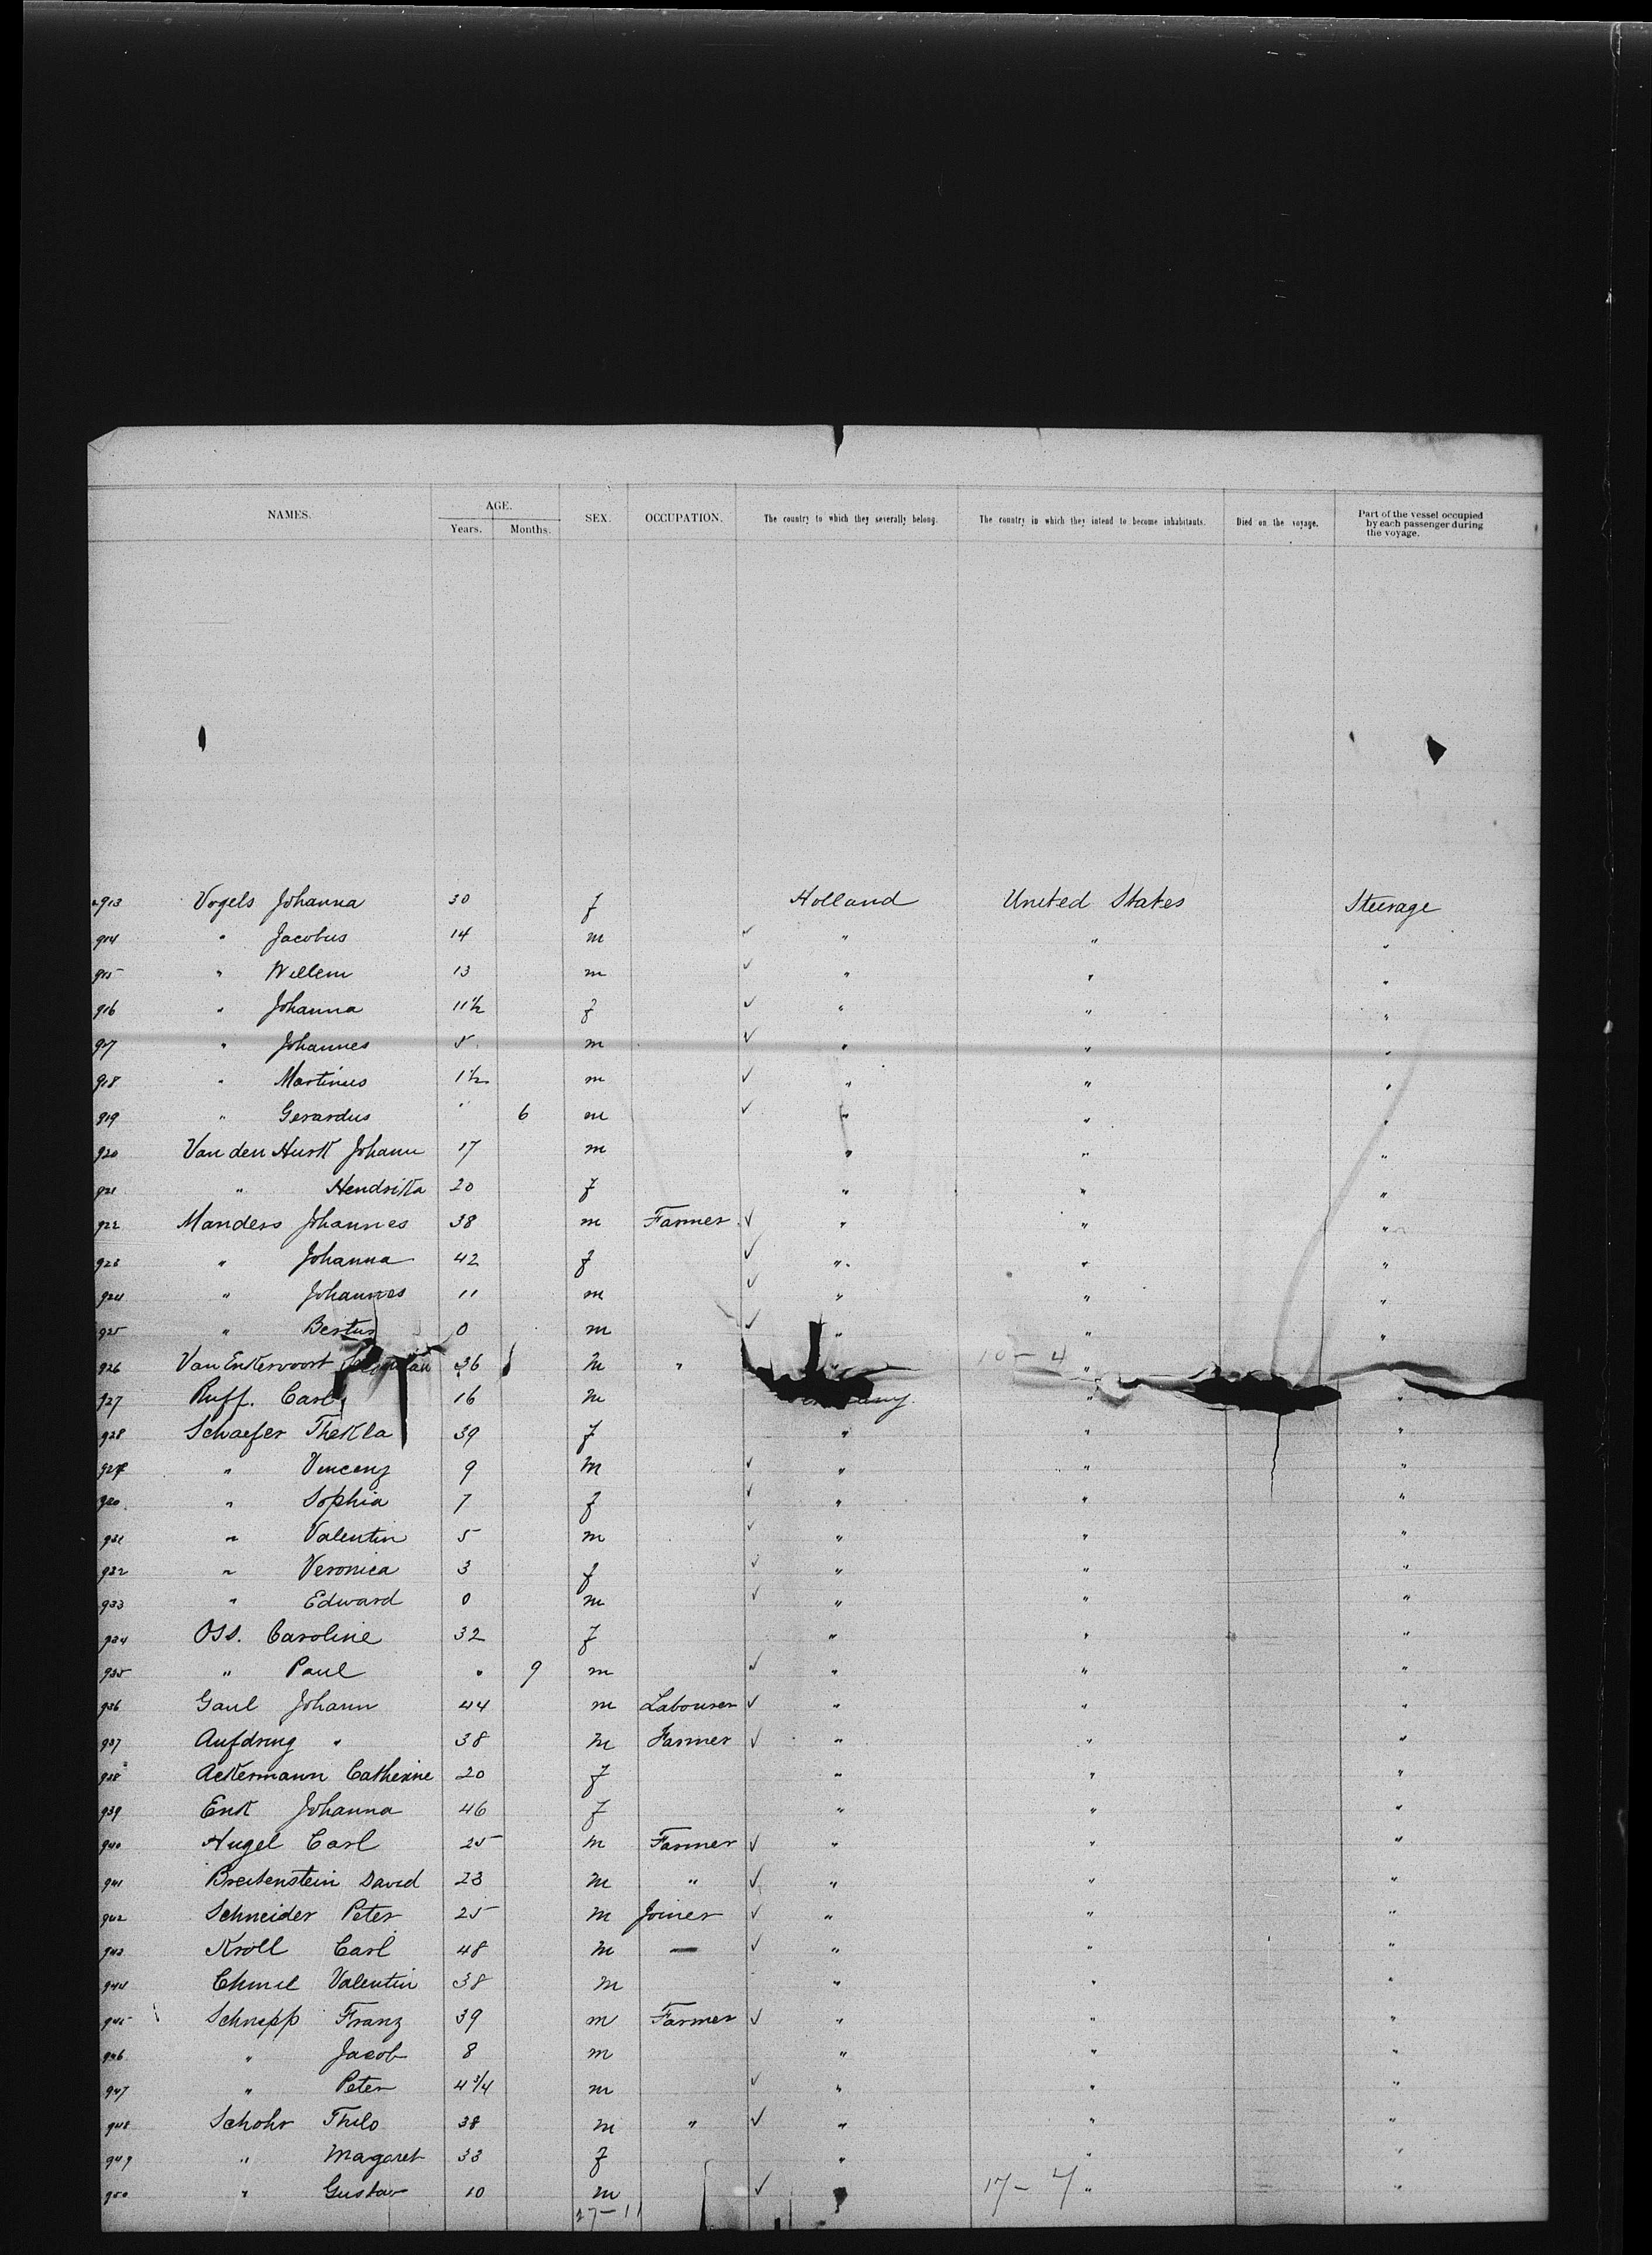 NAMES. AGE. Years. Months. SEX. OCCUPATION. The country to which they severally belong. The country in which they intend to become inhabitants. Died on the voyage. Part of the vessel occupied by each passenger during the voyage.
913 Vogels Johanna 30 f Holland United States Steerage
914 " Jacobus 14 m ✓ " " "
915 " Willem 13 m ✓ " " "
916 " Johanna 11½ f ✓ " " "
917 " Johannes 5 m ✓ " " "
918 " Martinus 1½ m ✓ " " "
919 " Gerardus " 6 m ✓ " " "
920 Van den Hurk Johann 17 m " " "
921 " Hendrika 20 f " " "
922 Manders Johannes 38 m Farmer ✓ " " "
923 " Johanna 42 f ✓ " " "
924 " Johannes 11 m ✓ " " "
925 " Bertus 0 m ✓ " " "
926 Van Enkervoort 36 m " " 10-4 "
927 Ruff. Carl 16 m " "
928 Schaefer Thekla 39 f " " "
929 " Vincenz 9 m ✓ " " "
930 " Sophia 7 f ✓ " " "
931 " Valentin 5 m ✓ " " "
932 " Veronica 3 f ✓ " " "
933 " Edward 0 m ✓ " " "
934 Oss. Caroline 32 f " " "
935 " Paul " 9 m ✓ " " "
936 Gaul Johann 44 m Labourer ✓ " " "
937 Aufdring " 38 m Farmer ✓ " " "
938 Ackermann Catherine 20 f " " "
939 Enk Johanna 46 f " " "
940 Hugel Carl 25 m Farmer ✓ " " "
941 Breitenstein David 23 m " ✓ " " "
942 Schneider Peter 25 m Joiner ✓ " " "
943 Kroll Carl 48 m — ✓ " " "
944 Chmel Valentin 38 m " " "
945 Schnepp Franz 39 m Farmer ✓ " " "
946 " Jacob 8 m " " "
947 " Peter 4 3/4 m ✓ " " "
948 Schohr Thilo 38 m " ✓ " " "
949 " Magaret 33 f " " "
950 " Gustav 10 m ✓ " 17-4 " "
27-11